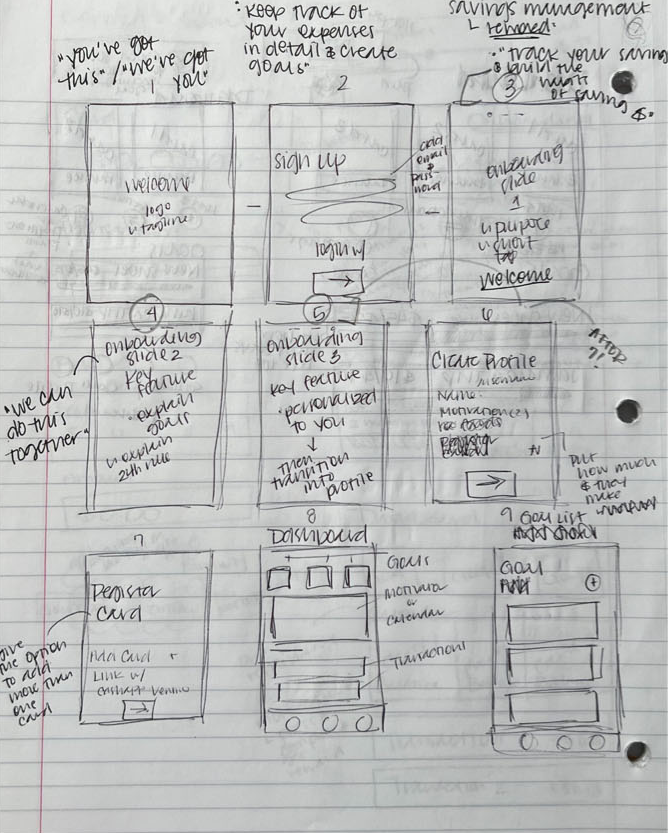 "you've got
this" / "we've got
you"
1
• keep track of
your expenses
in detail & create
goals"
2
savings management
reward:
• "Track your saving
& build the
habits
of saving $.
3
welcome
logo
tagline
sign up
add
email
&
password
login w/
→
onboarding
slide
1
purpose
short
welcome
4
onboarding
slide 2
key
feature
• explain
goals
explain
24th rule
"we can
do this
together"
5
onboarding
slide 3
key feature
• personalized
to you
↓
then
transition
into
profile
6
AFTER
7?
Create Profile
Name
Motivation(s)
→
put
how much
$ they
make
7
Register
Card
Add Card +
Link w/
cashapp venmo
→
give
the option
to add
more than
one
card
8
Dashboard
Goals
motivator
or
calendar
Transactions
9 Goal List
Goal
+